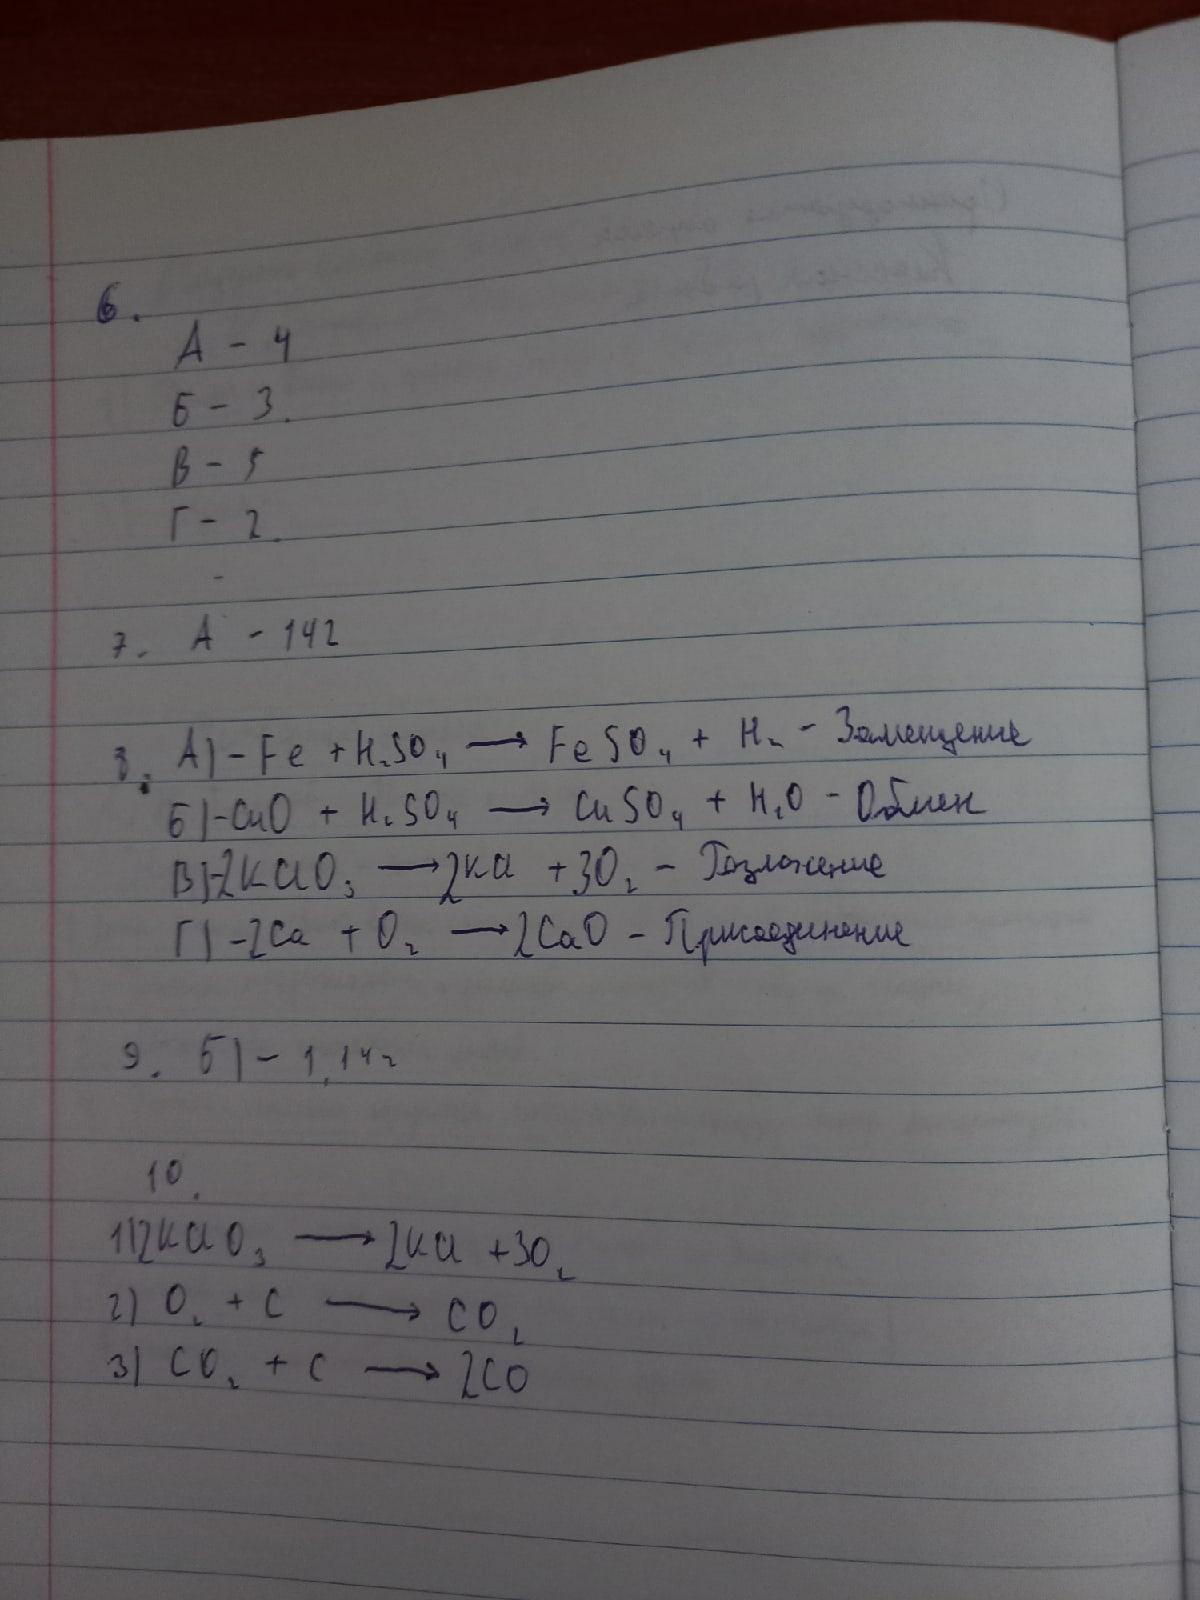 6.
А - 4
Б - 3.
В - 5
Г - 2.
7. А - 142
8. А) - Fe + H₂SO₄ → FeSO₄ + H₂ - Замещение
Б) - CuO + H₂SO₄ → CuSO₄ + H₂O - Обмен
В) - 2KClO₃ → 2KCl + 3O₂ - Разложение
Г) - 2Ca + O₂ → 2CaO - Присоединение
9. Б) - 1,14г
10.
1) 2KClO₃ → 2KCl + 3O₂
2) O₂ + C → CO₂
3) CO₂ + C → 2CO